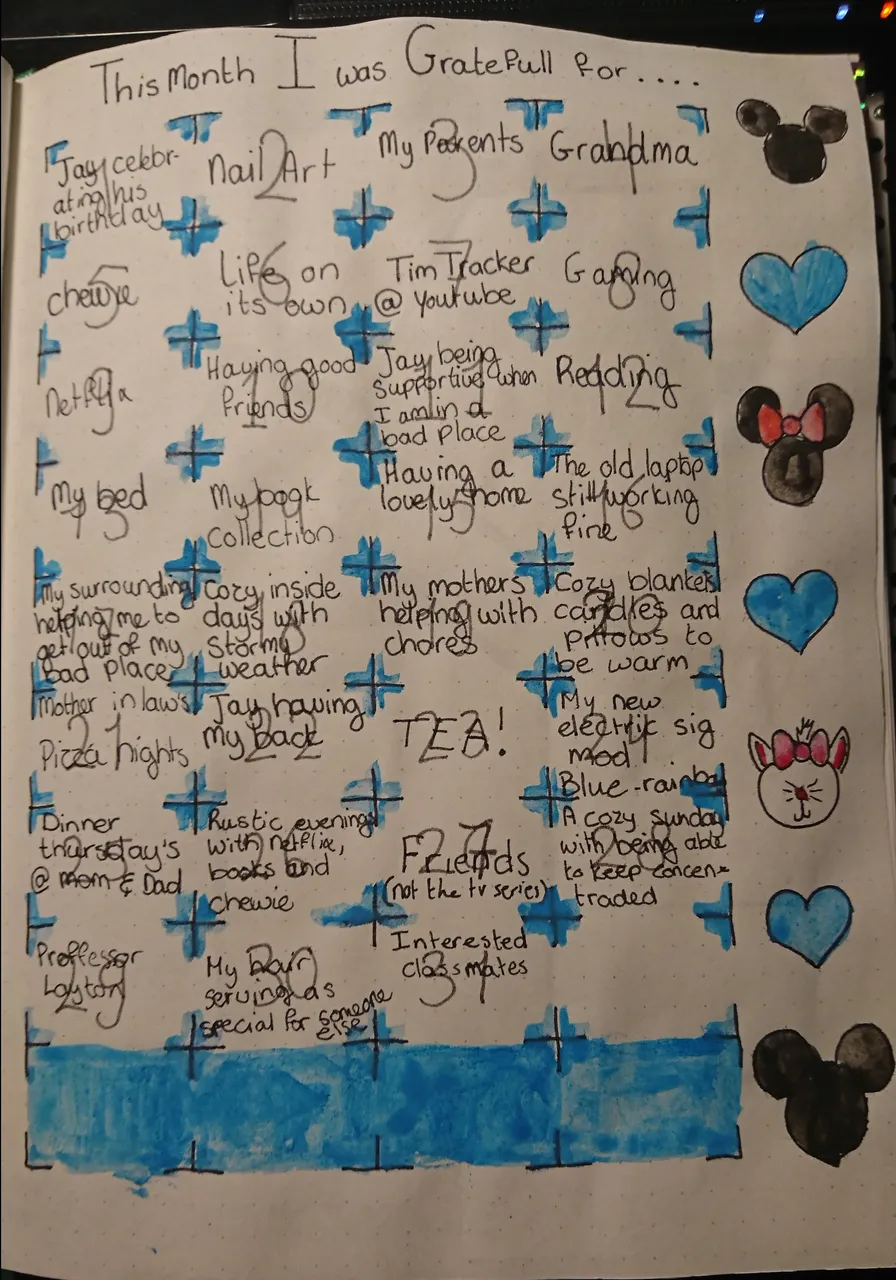 This Month I was Gratefull for....
Jay celebr-
ating his
birthday
1
Nail Art
2
My Parents
3
Grandma
4
chewie
5
Life on
its own
6
Tim Tracker
@ youtube
7
Gaming
8
Netflix
9
Having good
friends
10
Jay being
supportive when
I am in a
bad place
11
Reading
12
My bed
13
My book
collection
14
Having a
lovely home
15
The old laptop
still working
fine
16
My surrounding
helping me to
get out of my
bad place
17
Cozy inside
days with
stormy
weather
18
My mothers
helping with
chores
19
Cozy blankets
candles and
pillows to
be warm
20
Mother in law's
Pizza nights
21
Jay having
my back
22
TEA!
23
My new
electric sig
mod
Blue-rainbow
24
Dinner
thursday's
@ mom & Dad
25
Rustic evenings
with netflix,
books and
chewie
26
Friends
(not the tv series)
27
A cozy sunday
with being able
to keep concen-
traded
28
Proffessor
Layton
29
My hair
serving as
special for someone
else
30
Interested
classmates
31